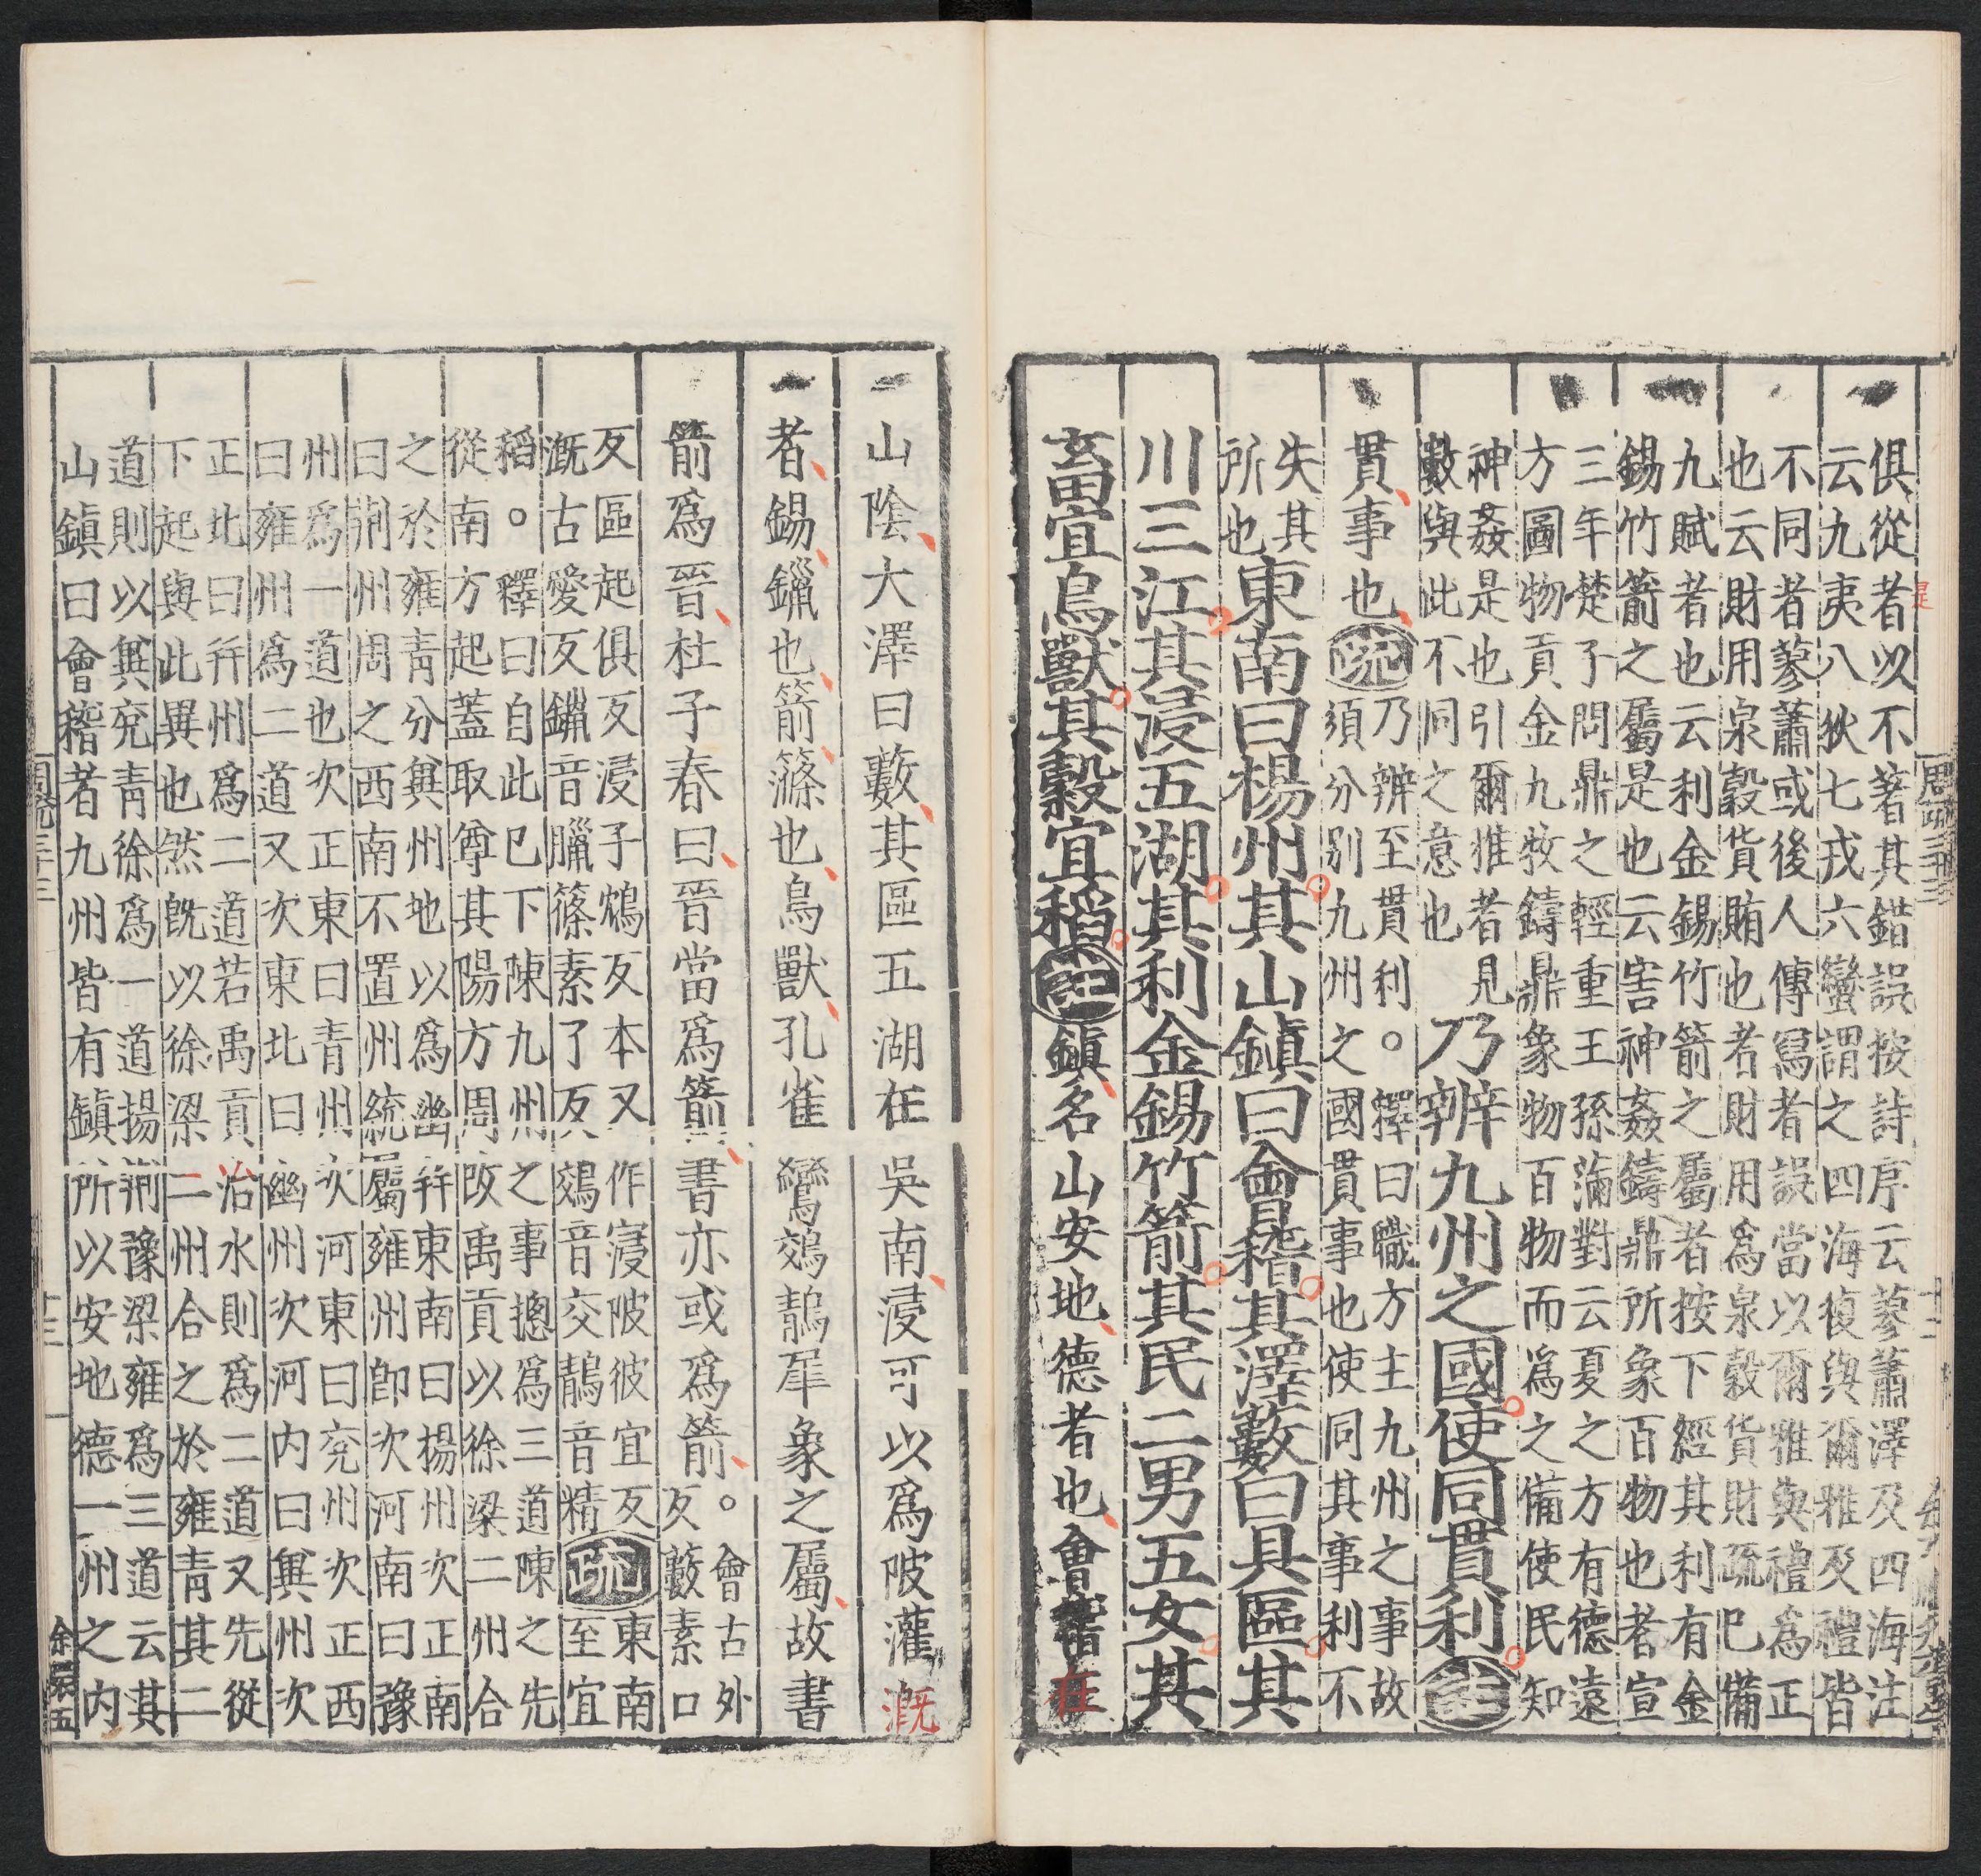 俱從者以不著其錯誤按詩序云蓼蕭澤及四海注
云九夷八狄七戎六蠻謂之四海復與爾雅及禮皆
不同者蓼蕭或後人傳寫者誤當以爾雅與禮爲正
也云財用泉穀貨賄也者財用爲泉穀貨財疏巳備
九賦者也云利金錫竹箭之屬者按下經其利有金
錫竹箭之屬是也云害神姦鑄鼎所象百物也者宣
三年楚子問鼎之輕重王孫滿對云夏之方有德遠
方圖物貢金九牧鑄鼎象物百物而爲之備使民知
神姦是也引爾雅者見
數與此不同之意也
乃辨九州之國使同貫利注
貫事也疏
乃辨至貫利。釋曰職方主九州之事故
須分別九州之國貫事也使同其事利不
失其
所也
東南曰楊州其山鎮曰會稽其澤藪曰具區其
川三江其浸五湖其利金錫竹箭其民二男五女其
畜宜鳥獸其穀宜稻注鎮名山安地德者也會稽在
山陰大澤曰藪其區五湖在吳南浸可以爲陂灌溉
者錫鑞也箭篠也鳥獸孔雀鸞鵁鶄犀象之屬故書
箭爲晉杜子春曰晉當爲箭書亦或爲箭。
會古外
反藪素口
反區起俱反浸子鴆反本又作寖陂彼宜反
溉古愛反鑞音臘篠素了反鵁音交鶄音精
疏
東南
至宜
稻。釋曰自此巳下陳九州之事摠爲三道陳之先
從南方起蓋取尊其陽方周改禹貢以徐梁二州合
之於雍青分兾州地以爲幽并東南曰揚州次正南
曰荆州周之西南不置州統屬雍州即次河南曰豫
州爲一道也次正東曰青州次河東曰兖州次正西
曰雍州爲二道又次東北曰幽州次河内曰兾州次
正北曰并州爲二道若禹貢治水則爲二道又先從
下起與此異也然旣以徐梁二州合之於雍青其二
道則以兾兖青徐爲一道揚荆豫梁雍爲三道云其
山鎮曰會稽者九州皆有鎮所以安地德一州之内